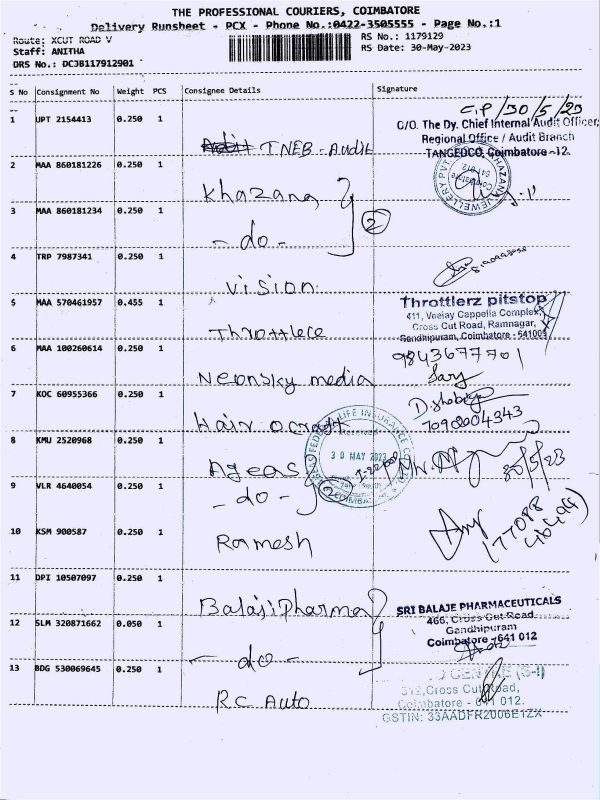 THE PROFESSIONAL COURIERS, COIMBATORE
Delivery Runsheet - PCX - Phone No.:0422-3505555 - Page No.:1
Route: XCUT ROAD V
Staff: ANITHA
DRS No.: DC3B117912901
RS No.: 1179129
RS Date: 30-May-2023
S No Consignment No Weight PCS Consignee Details Signature
1 UPT 2154413 0.250 1 TNEB - Audit
30/5/23
C/O. The Dy. Chief Internal Audit Officer,
Regional Office / Audit Branch
TANGEDCO, Coimbatore -12.
2 MAA 860181226 0.250 1 Khazana
KHAZANA JEWELLERY PVT
3 MAA 860181234 0.250 1 - do - 2
4 TRP 7987341 0.250 1 Vision
5 MAA 570461957 0.455 1 Throttlece
Throttlerz pitstop
411, Veejay Cappella Complex,
Cross Cut Road, Ramnagar,
Gandhipuram, Coimbatore - 641009
6 MAA 100260614 0.250 1 Neonsky media
9843677701
7 KOC 60955366 0.250 1 Hair o craft
8 KMU 2520968 0.250 1 Ageas
FEDERAL LIFE INSURANCE
30 MAY 2023
30/5/23
9 VLR 4640054 0.250 1 - do - 2
10 KSM 900587 0.250 1 Ramesh
11 DPI 10507097 0.250 1 Balaji Pharma
SRI BALAJE PHARMACEUTICALS
466, Cross Cut Road
Gandhipuram
Coimbatore - 641 012
12 SLM 320871662 0.050 1 - do -
13 BDG 530069645 0.250 1 RC Auto
CENTRE (S-I)
312, Cross Cut Road,
Coimbatore - 641 012.
GSTIN: 33AADFR2006E1ZX